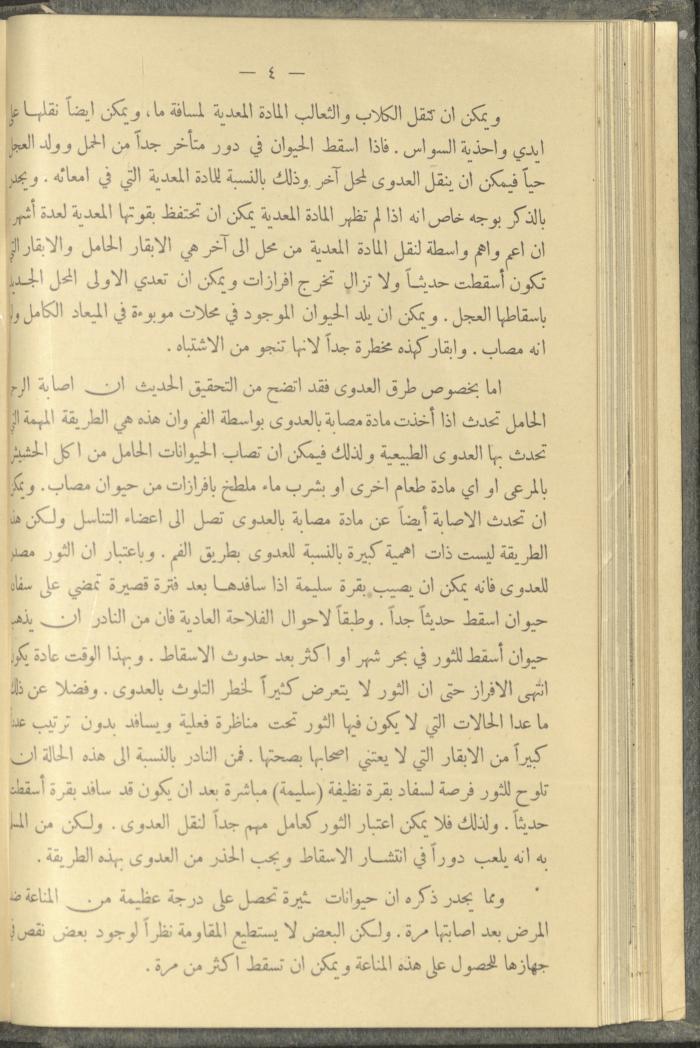 — ٤ —
ويمكن ان تنقل الكلاب والثعالب المادة المعدية لمسافة ما، ويمكن ايضاً نقلها
ايدي واحذية السواس . فاذا اسقط الحيوان في دور متأخر جداً من الحمل وولد العجل
حياً فيمكن ان ينقل العدوى لمحل آخر وذلك بالنسبة للمادة المعدية التي في امعائه . ويجدر
بالذكر بوجه خاص انه اذا لم تظهر المادة المعدية يمكن ان تحتفظ بقوتها المعدية لعدة أشهر
ان اعم واهم واسطة لنقل المادة المعدية من محل الى آخر هي الابقار الحامل والابقار التي
تكون أسقطت حديثاً ولا تزال تخرج افرازات ويمكن ان تعدي الاولى المحل الجديد
باسقاطها العجل . ويمكن ان يلد الحيوان الموجود في محلات موبوءة في الميعاد الكامل
انه مصاب . وابقار كهذه مخطرة جداً لانها تنجو من الاشتباه .
اما بخصوص طرق العدوى فقد اتضح من التحقيق الحديث ان اصابة
الحامل تحدث اذا أخذت مادة مصابة بالعدوى بواسطة الفم وان هذه هي الطريقة المهمة التي
تحدث بها العدوى الطبيعية ولذلك فيمكن ان تصاب الحيوانات الحامل من اكل الحشيش
بالمرعى او اي مادة طعام اخرى او بشرب ماء ملطخ بافرازات من حيوان مصاب . ويمكن
ان تحدث الاصابة أيضاً عن مادة مصابة بالعدوى تصل الى اعضاء التناسل ولكن
الطريقة ليست ذات اهمية كبيرة بالنسبة للعدوى بطريق الفم . وباعتبار ان الثور مصدر
للعدوى فانه يمكن ان يصيب بقرة سليمة اذا سافدها بعد فترة قصيرة تمضي على سفاد
حيوان اسقط حديثاً جداً . وطبقاً لاحوال الفلاحة العادية فان من النادر ان يذهب
حيوان أسقط للثور في بحر شهر او اكثر بعد حدوث الاسقاط . وبهذا الوقت عادة يكون
انتهى الافراز حتى ان الثور لا يتعرض كثيراً لخطر التلوث بالعدوى . وفضلا عن ذلك
ما عدا الحالات التي لا يكون فيها الثور تحت مناظرة فعلية ويسافد بدون ترتيب عدداً
كبيراً من الابقار التي لا يعتني اصحابها بصحتها . فمن النادر بالنسبة الى هذه الحالة ان
تلوح للثور فرصة لسفاد بقرة نظيفة (سليمة) مباشرة بعد ان يكون قد سافد بقرة أسقطت
حديثاً . ولذلك فلا يمكن اعتبار الثور كعامل مهم جداً لنقل العدوى . ولكن من المسلم
به انه يلعب دوراً في انتشار الاسقاط ويجب الحذر من العدوى بهذه الطريقة .
ومما يجدر ذكره ان حيوانات كثيرة تحصل على درجة عظيمة من المناعة ضد
المرض بعد اصابتها مرة . ولكن البعض لا يستطيع المقاومة نظراً لوجود بعض نقص في
جهازها للحصول على هذه المناعة ويمكن ان تسقط اكثر من مرة .